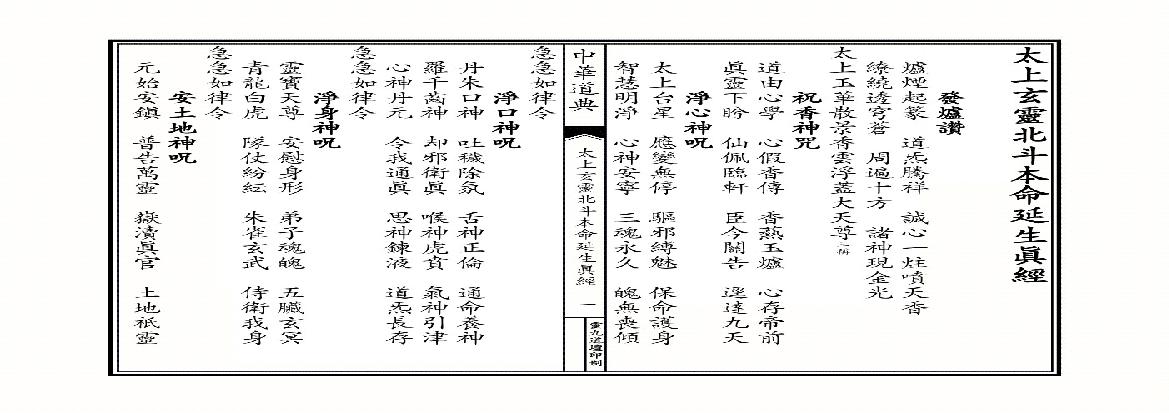 太上玄靈北斗本命延生眞經
發爐讚
爐煙起篆　道炁騰祥　誠心一炷噴天香
繚繞透穹蒼　周遍十方　諸神現金光
太上玉華散景香雲浮蓋大天尊三稱
祝香神咒
道由心學　心假香傳　香爇玉爐　心存帝前
眞靈下盼　仙佩臨軒　臣今關告　逕達九天
淨心神呪
太上台星　應變無停　驅邪縛魅　保命護身
智慧明淨　心神安寧　三魂永久　魄無喪傾
中華道典
太上玄靈北斗本命延生眞經
一
九道壇印制
急急如律令
淨口神呪
丹朱口神　吐穢除氛　舌神正倫　通命養神
羅千齒神　却邪衛眞　喉神虎賁　氣神引津
心神丹元　令我通眞　思神鍊液　道炁長存
急急如律令
淨身神呪
靈寳天尊　安慰身形　弟子魂魄　五臟玄冥
青龍白虎　隊仗紛紜　朱雀玄武　侍衛我身
急急如律令
安土地神呪
元始安鎮　普告萬靈　嶽瀆眞官　土地祇靈